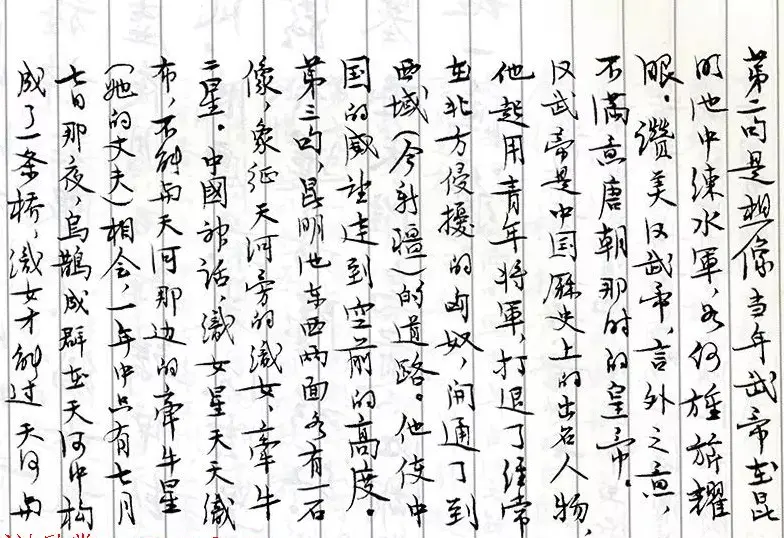 第二句是想像当年武帝在昆
明池中練水軍，如何旌旂耀
眼。讚美汉武帝，言外之意，
不滿意唐朝那时的皇帝。
汉武帝是中国厤史上的出名人物，
他起用青年将軍，打退了经常
在北方侵擾的匈奴，开通了到
西域（今新疆）的道路。他使中
国的威望达到空前的高度。
第三句，昆明池东西两面各有一石
像，象征天河旁的織女、牽牛
二星。中國神话，織女星天天織
布，不能与天河那边的牽牛星
（她的丈夫）相会，一年中只有七月
七日那夜，烏鵲成群在天河中构
成了一条桥，織女才能过天河与